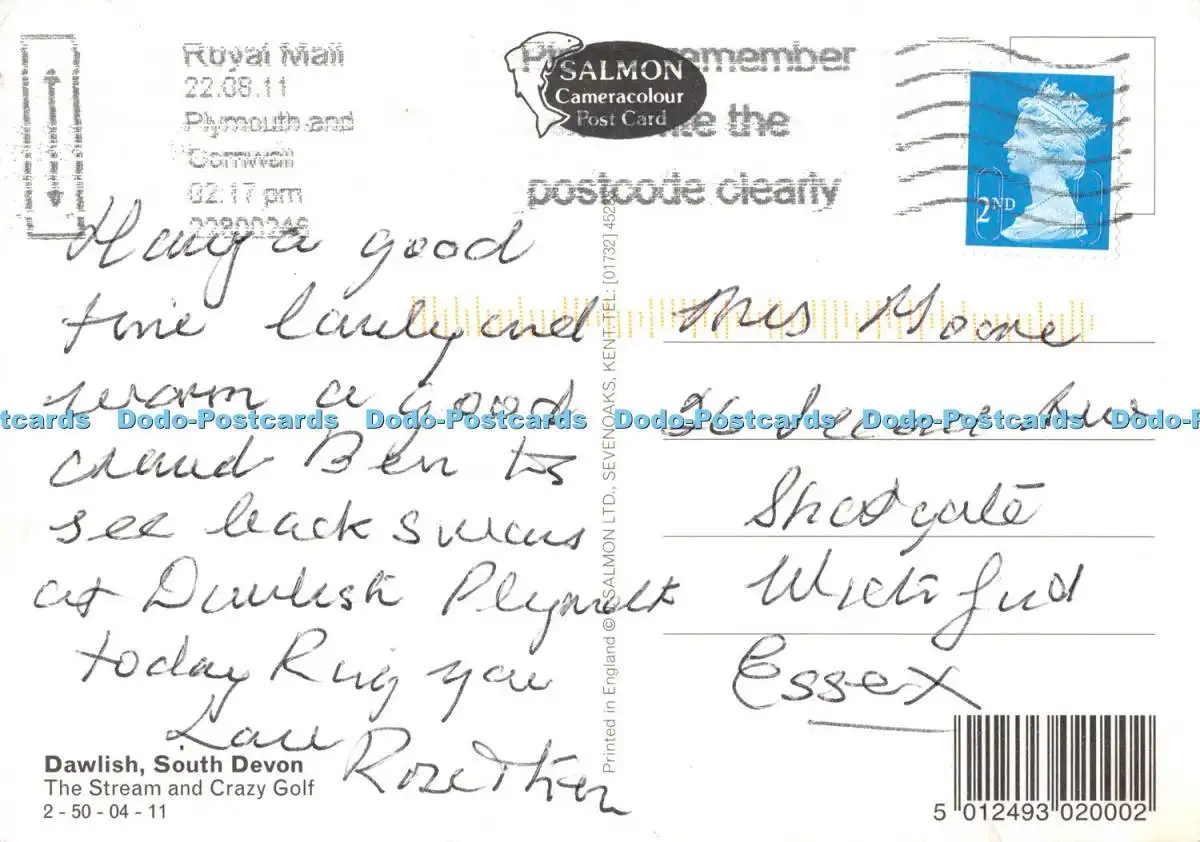 Royal Mail
22.08.11
Plymouth and
Cornwall
02.17 pm
SALMON
Cameracolour
Post Card
remember
the
postcode clearly
2ND
Having a good
time lovely and
warm a good
crowd Ben to
see back swans
at Dawlish Plymoth
today Ring you
Love
Rose
Mrs Moore
36
Shotgate
Wickford
Essex
Printed in England © SALMON LTD., SEVENOAKS, KENT. TEL: [01732]
Dodo-Postcards Dodo-Postcards Dodo-Postcards Dodo-Postcards
Dawlish, South Devon
The Stream and Crazy Golf
2 - 50 - 04 - 11
5 012493 020002